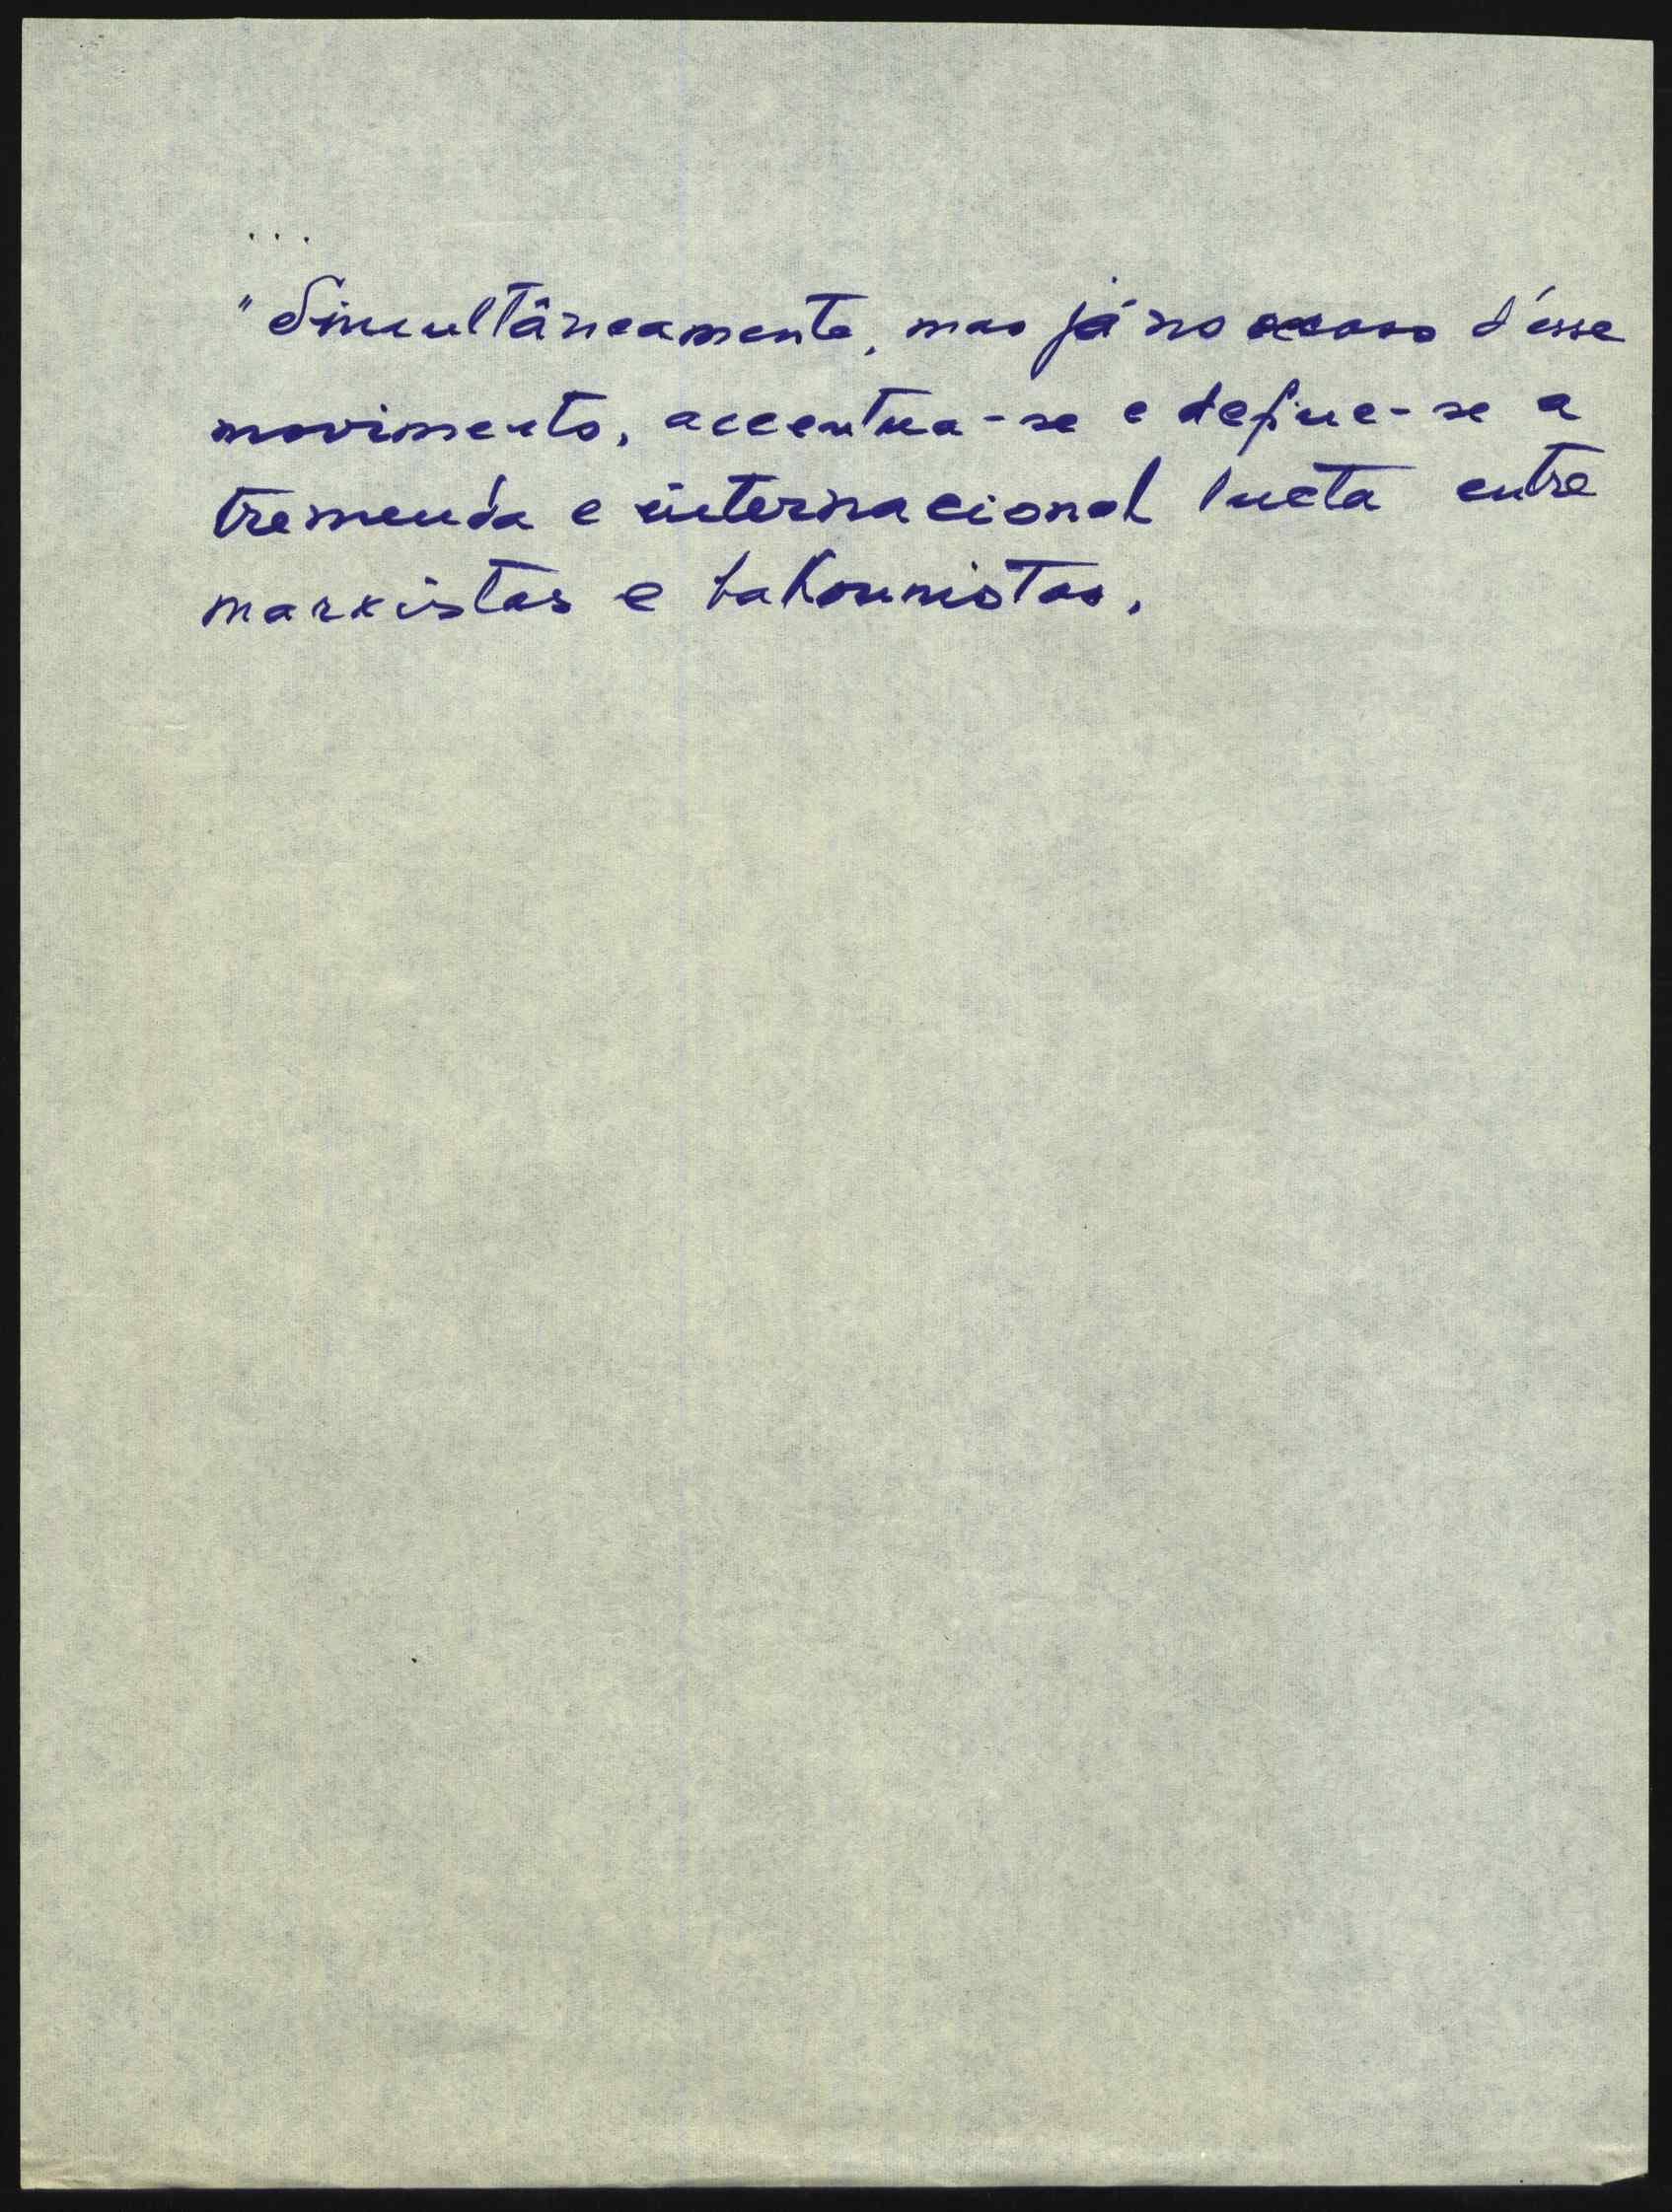 ...
"Simultâneamente, mas já no ocaso d'esse
movimento, accentua-se e define-se a
tremenda e internacional lucta entre
marxistas e bakounistas.